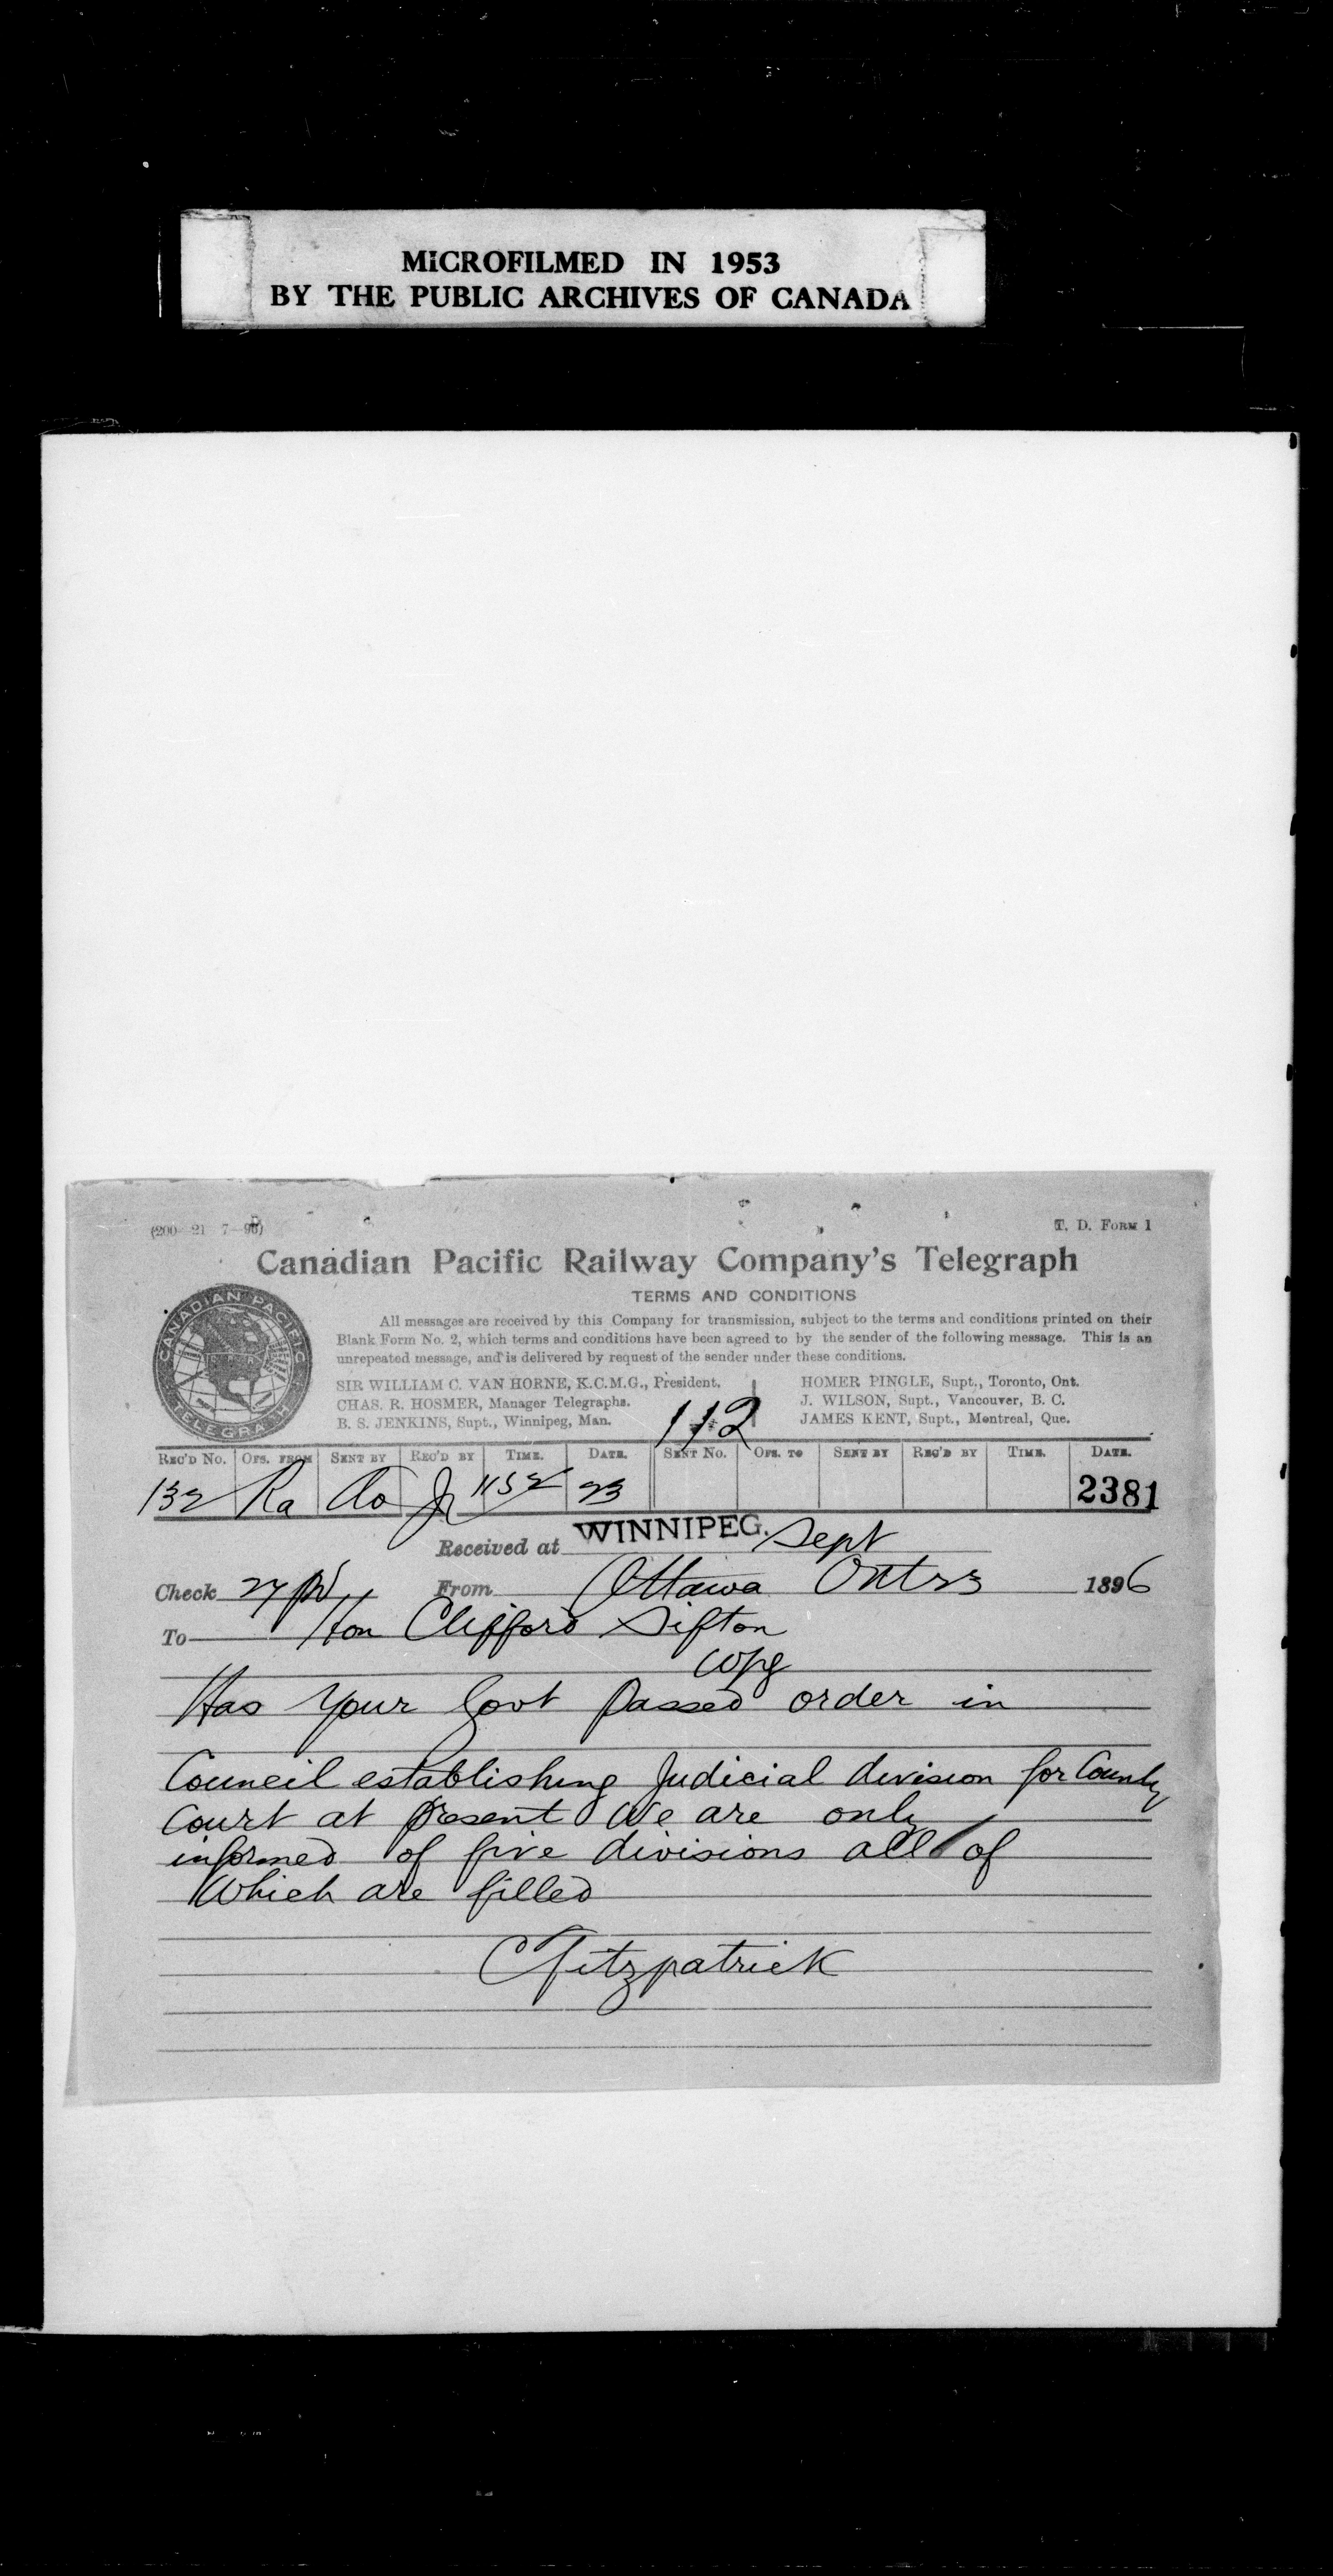 MICROFILMED IN 1953
BY THE PUBLIC ARCHIVES OF CANADA
(200 21 7-96)
T. D. FORM 1
Canadian Pacific Railway Company's Telegraph
TERMS AND CONDITIONS
All messages are received by this Company for transmission, subject to the terms and conditions printed on their
Blank Form No. 2, which terms and conditions have been agreed to by the sender of the following message. This is an
unrepeated message, and is delivered by request of the sender under these conditions.
CANADIAN PACIFIC
TELEGRAPH
SIR WILLIAM C. VAN HORNE, K.C.M.G., President.
CHAS. R. HOSMER, Manager Telegraphs.
B. S. JENKINS, Supt., Winnipeg, Man.
HOMER PINGLE, Supt., Toronto, Ont.
J. WILSON, Supt., Vancouver, B. C.
JAMES KENT, Supt., Montreal, Que.
112
REC'D No. OFS. FROM SENT BY REC'D BY TIME. DATE. SENT No. OFS. TO SENT BY REC'D BY TIME. DATE.
132 Ra 1152 23 2381
Received at WINNIPEG. Sept
Check 27 pd From Ottawa Ont 23 1896
To Hon Clifford Sifton
Wpg
Has your Govt passed order in
Council establishing Judicial division for County
Court at present We are only
informed of five divisions all of
which are filled
C Fitzpatrick